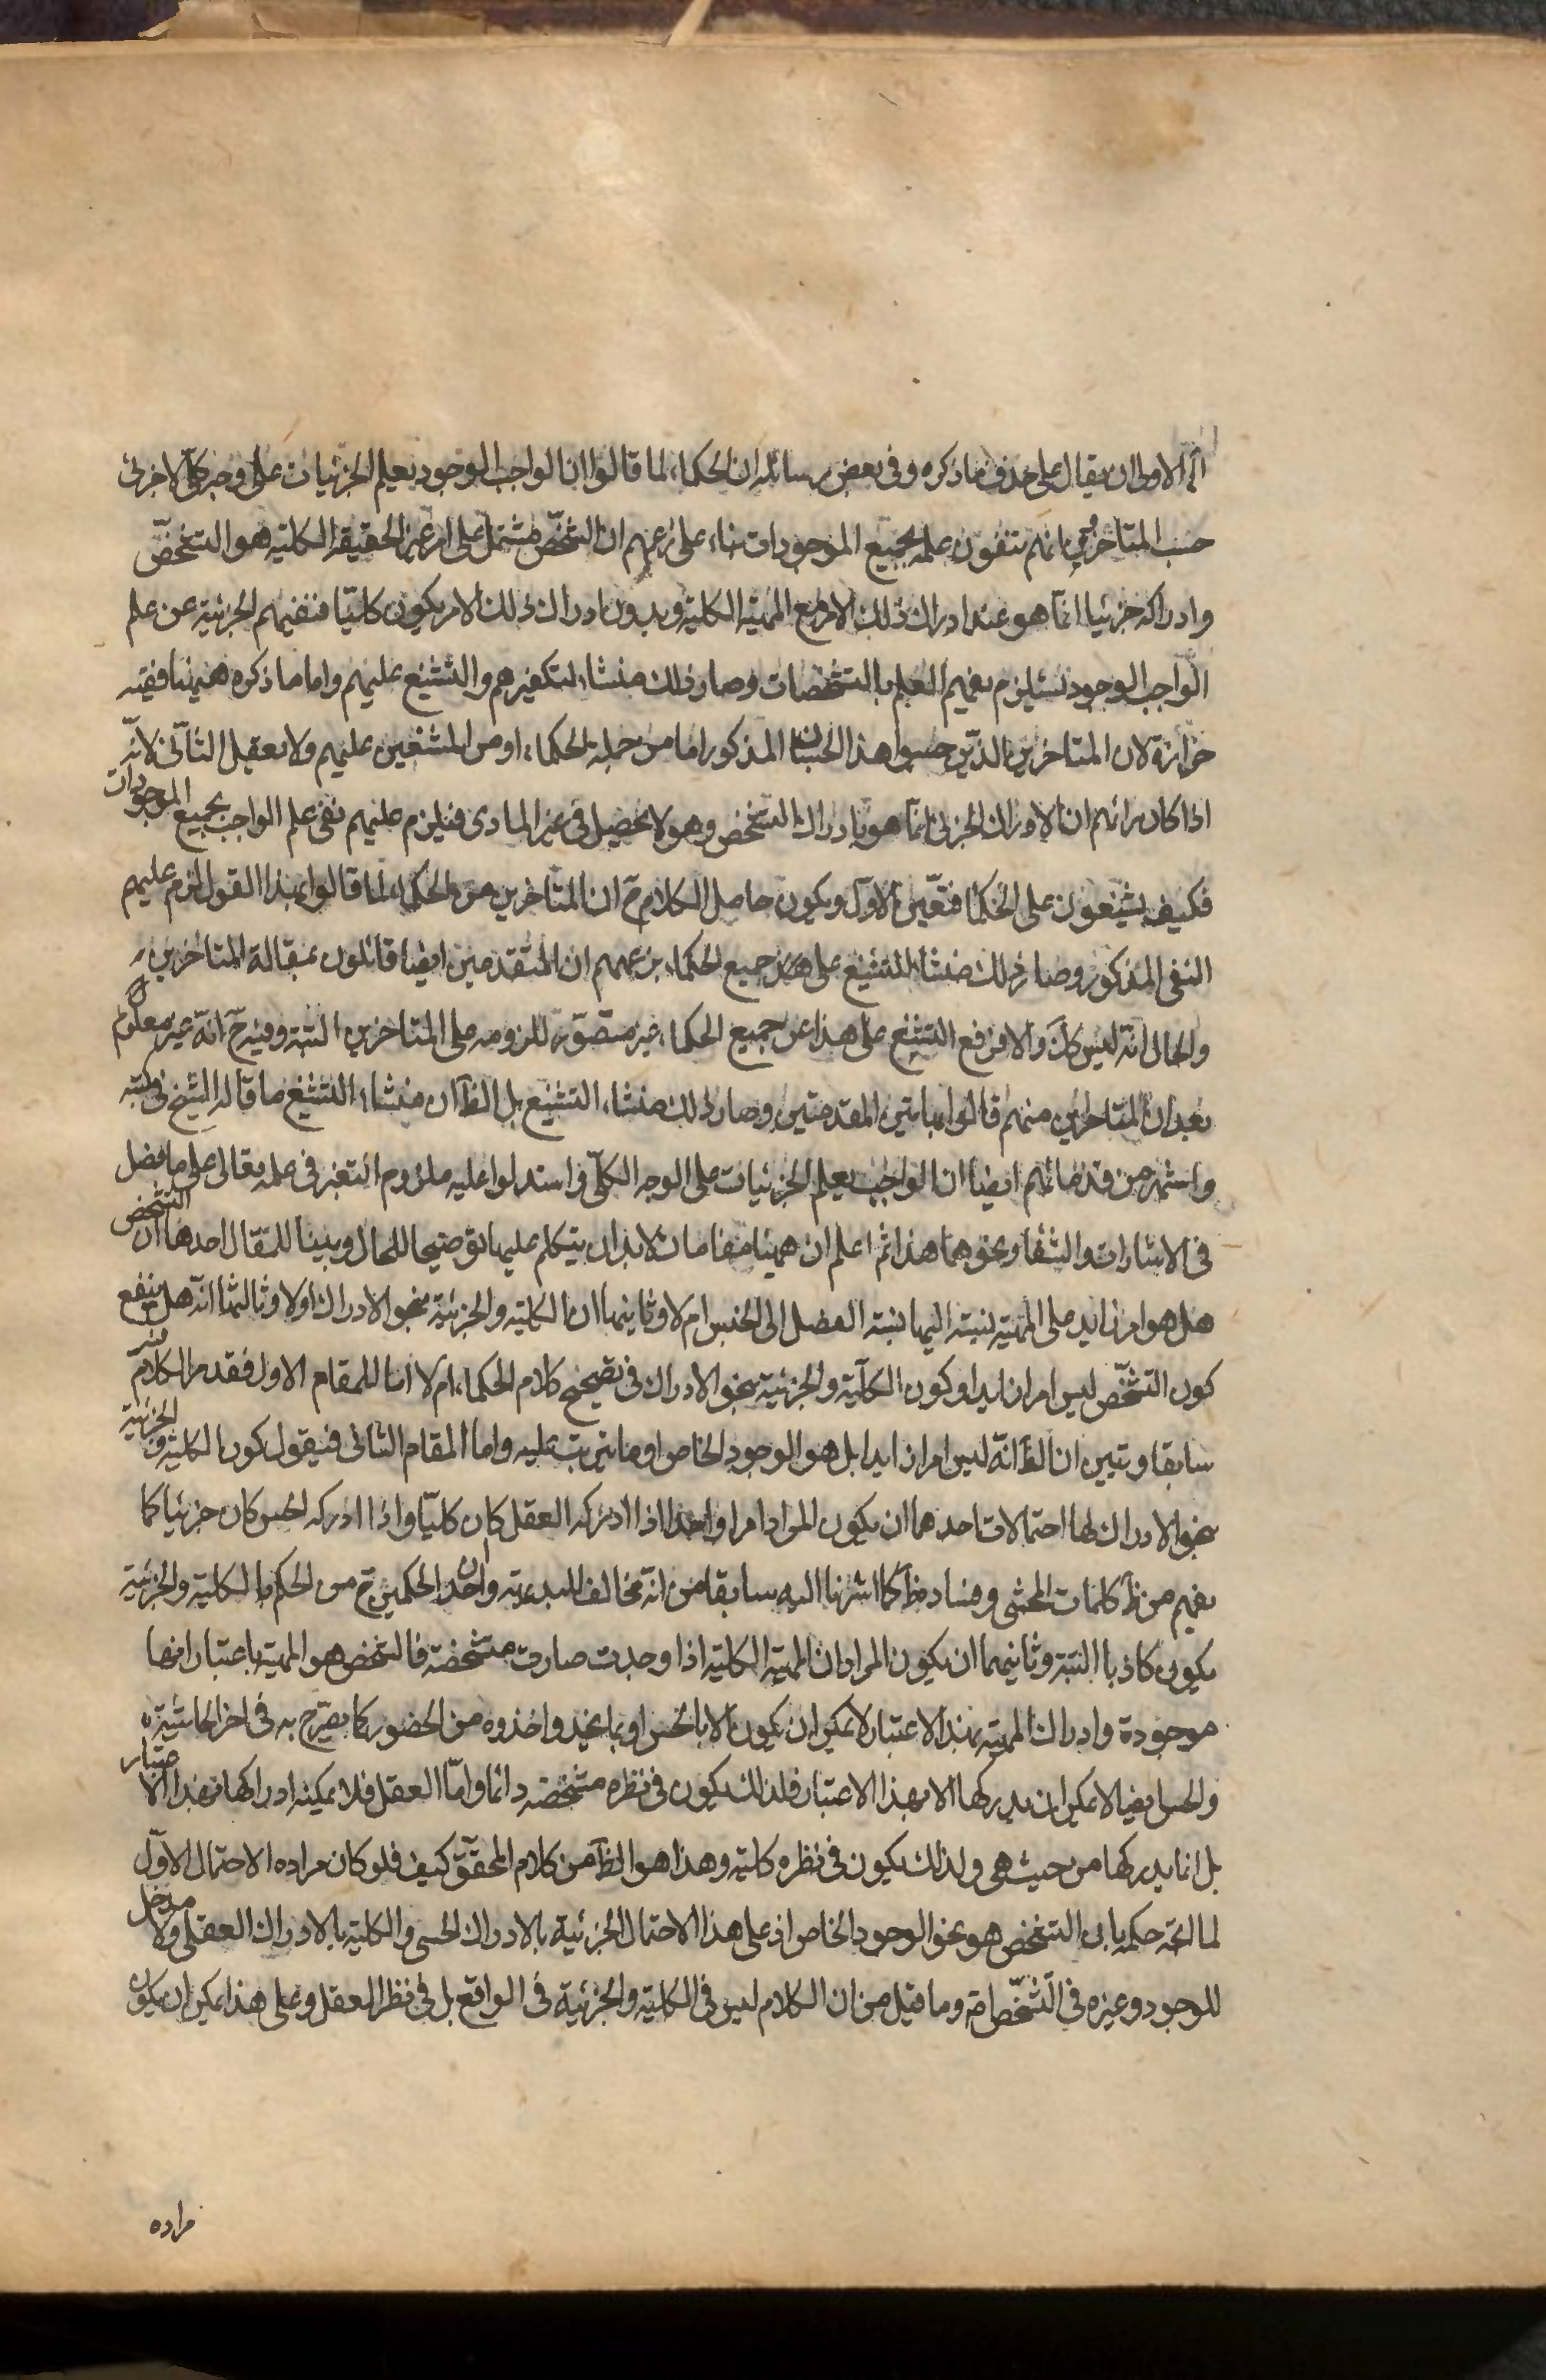 الاولى ان يقال على حذف ما ذكره وفى بعض رسائله ان الحكماء لما قالوا ان الواجب الوجود يعلم الجزئيات على وجه كلى لا جزئى
حسب المتاخرين انهم ينفون علمه بجميع الموجودات بناء على زعمهم ان الشخص مشتمل على امر غير الحقيقة الكلية هو التشخص
وادراكه جزئيا انما هو عند ادراك ذلك الامر مع المهية الكلية وبدون ادراك ذلك الامر يكون كليا فنفيهم الجزئية عن علم
الواجب الوجود يستلزم نفيهم العلم بالتشخصات وصار ذلك منشاء لتكفيرهم والتشنيع عليهم واما ما ذكره ههنا ففيه
حزازة لان المتاخرين الذين حسبوا هذا الحسبان المذكور اما من جملة الحكماء او من المشنعين عليهم ولا يعقل الثانى لانه
اذا كان رائهم ان الادراك الجزئى انما هو بادراك التشخص وهو لا يحصل فى غير المادى فيلزم عليهم نفى علم الواجب بجميع الموجودات
فكيف يشنعون على الحكما فتعين الاول ويكون حاصل الكلام ح ان المتاخرين من الحكماء لما قالوا بهذا القول لزم عليهم
النفى المذكور وصار ذلك منشاء للتشنيع على جميع الحكماء بزعمهم ان المتقدمين ايضا قائلون بمقالة المتاخرين
والحال انه ليس كك والا فرفع التشنيع على هذا عن جميع الحكماء غير متصور للزومه على المتاخرين البتة وفيه ح انه غير معلوم
بعد ان المتاخرين منهم قالوا بهاتين المقدمتين وصار ذلك منشاء التشنيع بل الظ ان منشاء التشنيع ما قاله الشيخ فى كتبه
واشتهر من قدمائهم ايضا ان الواجب يعلم الجزئيات على الوجه الكلى واستدلوا عليه بلزوم التغير فى علمه تعالى على ما فصل
فى الاشارات والشفا ونحوهما هذا ثم اعلم ان ههنا مقامات لابد ان يتكلم عليها توضيحا للحال وتبيينا للمقال احدها ان التشخص
هل هو امر زايد على المهية نسبته اليها نسبة الفصل الى الجنس ام لا وثانيها ان الكلية والجزئية بنحو الادراك اولا وثالثها انه هل ينفع
كون التشخص ليس امرا زايدا وكون الكلية والجزئية بنحو الادراك فى تصحيح كلام الحكماء ام لا اما المقام الاول فقد مر الكلام
سابقا وتبين ان الظ انه ليس امرا زايدا بل هو الوجود الخاص او ما يترتب عليه واما المقام الثانى فنقول كون الكلية والجزئية
بنحو الادراك لها احتمالات احدهما ان يكون المراد امرا واحدا اذا ادركه العقل كان كليا واذا ادركه الحس كان جزئيا كما
يفهم من ظ كلمات المحشى وفساده ظ كما اشرنا اليه سابقا من انه مخالف للبديهة وان احد الحكمين ح من الحكم بالكلية والجزئية
يكون كاذبا البتة وثانيهما ان يكون المراد ان المهية الكلية اذا وجدت صارت متشخصة فالشخص هو المهية باعتبار انها
موجودة وادراك المهية بهذا الاعتبار لا يمكن ان يكون الا بالحس او بما يحذو حذوه من الحضور كما يصرح به فى اخر الحاشية
والحس ايضا لا يمكن ان يدركها الا بهذا الاعتبار فلذلك يكون فى نظره متشخصة دائما واما العقل فلا يمكنه ادراكها بهذا الاعتبار
بل انما يدركها من حيث هى ولذلك يكون فى نظره كلية وهذا هو الظ من كلام المحقق كيف فلو كان مراده الاحتمال الاول
لما اتجه حكمه بان التشخص هو نحو الوجود الخاص اذ على هذا الاحتمال الجزئية بالادراك الحسى والكلية بالادراك العقلى ولا مدخل
للوجود وغيره فى التشخص اصلا وما قيل من ان الكلام ليس فى الكلية والجزئية فى الواقع بل فى نظر العقل وعلى هذا يمكن ان يكون
مراده